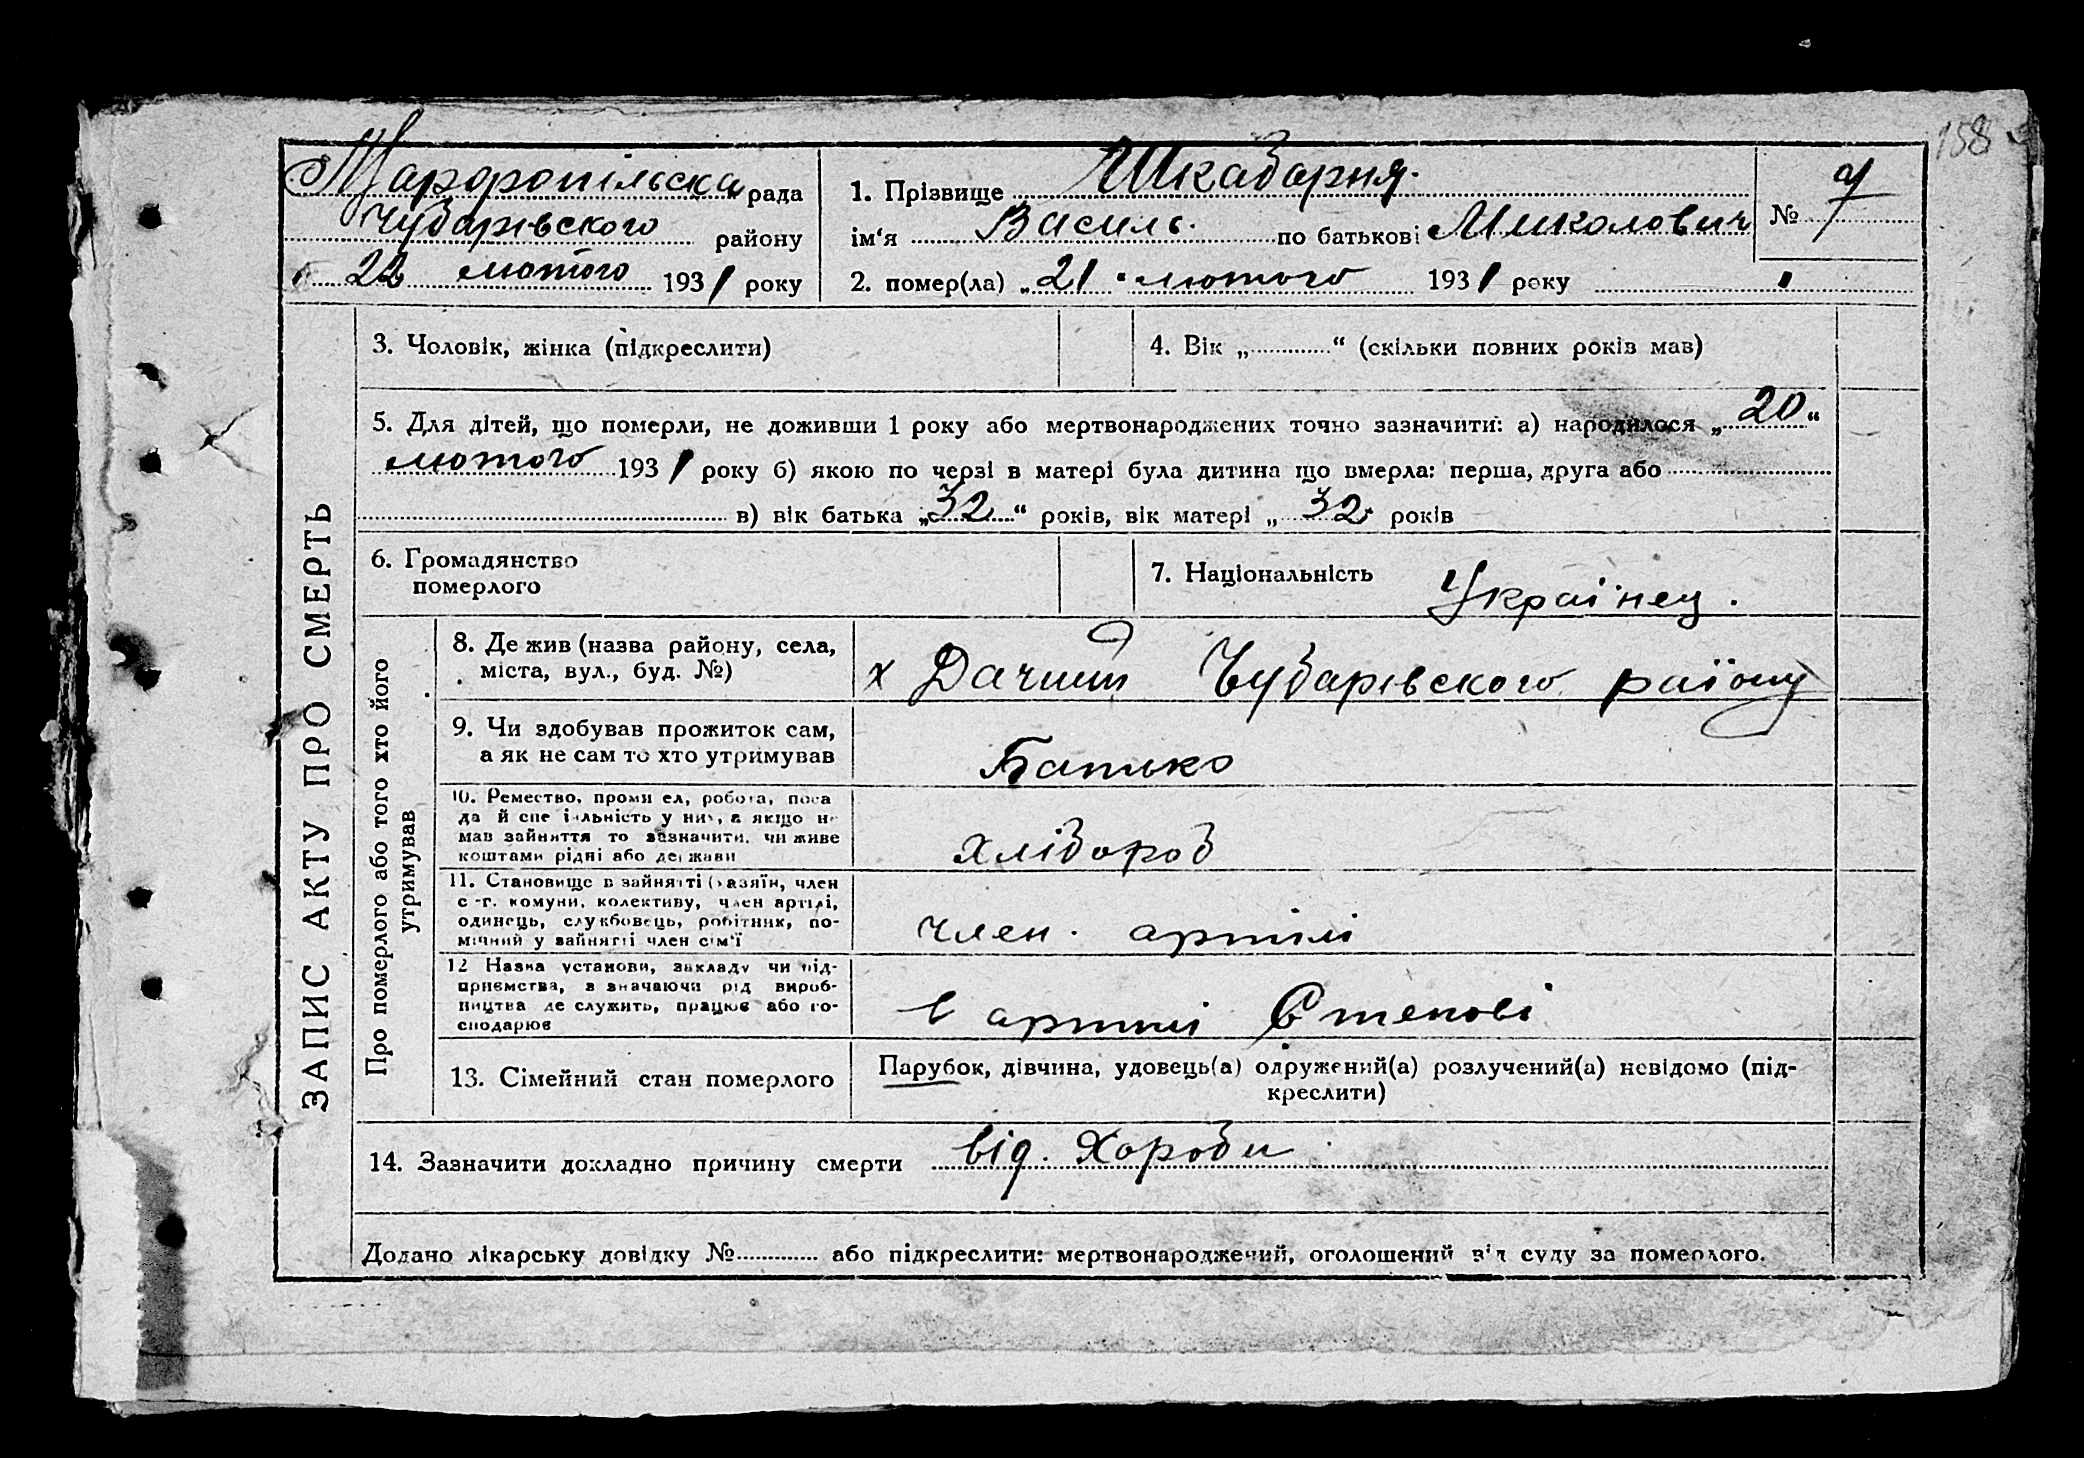 158
Тарфопільска рада
Чубарівского району
22 лютого 1931 року
1. Прізвище Шкабарня.
ім‘я Василь. по батькові Миколович
№ 7
2. помер(ла) „21“ лютого 1931 року
ЗАПИС АКТУ ПРО СМЕРТЬ
3. Чоловік, жінка (підкреслити)
4. Вік „.............“ (скільки повних років мав)
5. Для дітей, що померли, не доживши 1 року або мертвонароджених точно зазначити: а) народилося „20“
лютого 1931 року б) якою по черзі в матері була дитина що вмерла: перша, друга або
в) вік батька „32“ років, вік матері „32 років
6. Громадянство
померлого
7. Національність Українец.
Про померлого або того хто його
утримував
8. Де жив (назва району, села,
міста, вул., буд. №)
х Дачний Чубарівского району
9. Чи здобував прожиток сам,
а як не сам то хто утримував
Батько
10. Ремество, промисел, робота, поса
да й спеціяльність у них, а якщо не
мав зайняття то зазначити, чи живе
коштами рідні або держави
Хлібороб
11. Становище в зайнятті (хазяїн, член
с-г. комуни, колективу, член артілі,
одинець, службовець, робітник, по-
мічний у зайнятті член сім‘ї
член. артілі
12 Назва установи, закладу чи під-
приємства, зазначаючи рід вироб-
ництва де служить, працює або го-
сподарює
в артілі Степові
13. Сімейний стан померлого
Парубок, дівчина, удовець(а) одружений(а) розлучений(а) невідомо (під-
креслити)
14. Зазначити докладно причину смерти від. Хороби
Додано лікарську довідку №............. або підкреслити: мертвонароджений, оголошений від суду за померлого.